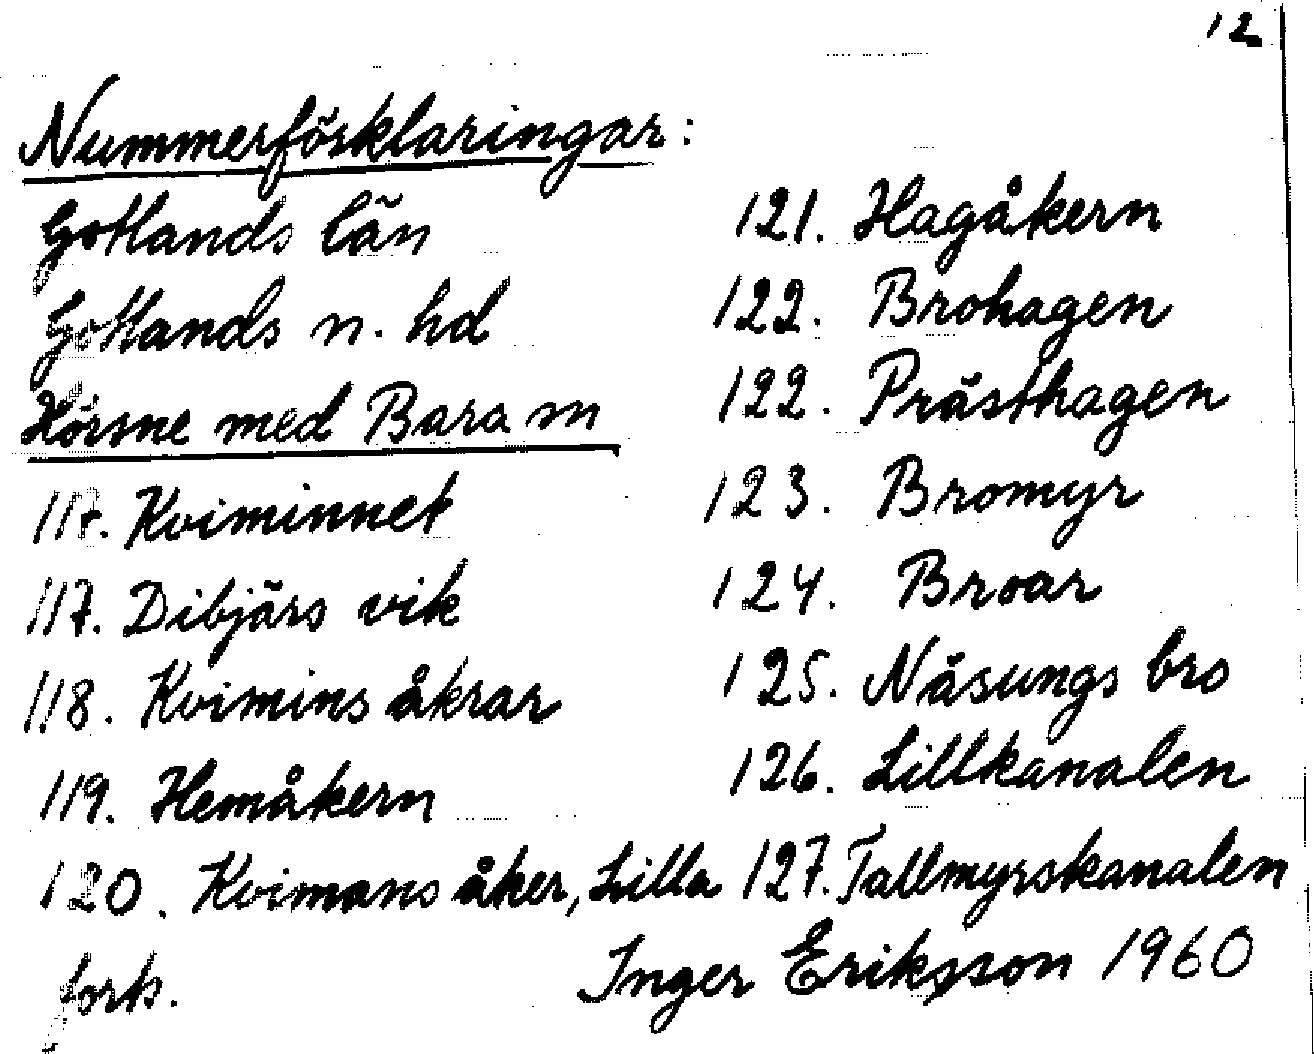 12
Nummerförklaringar:
Gotlands län
Gotlands n. hd
Hörsne med Bara sn
117. Kviminnet
117. Dibjärs vik
118. Kvimins åkrar
119. Hemåkern
120. Kvimans åker, Lilla
forts.
121. Hagåkern
122. Brohagen
122. Prästhagen
123. Bromyr
124. Broar
125. Näsungs bro
126. Lillkanalen
127. Tallmyrskanalen
Inger Eriksson 1960